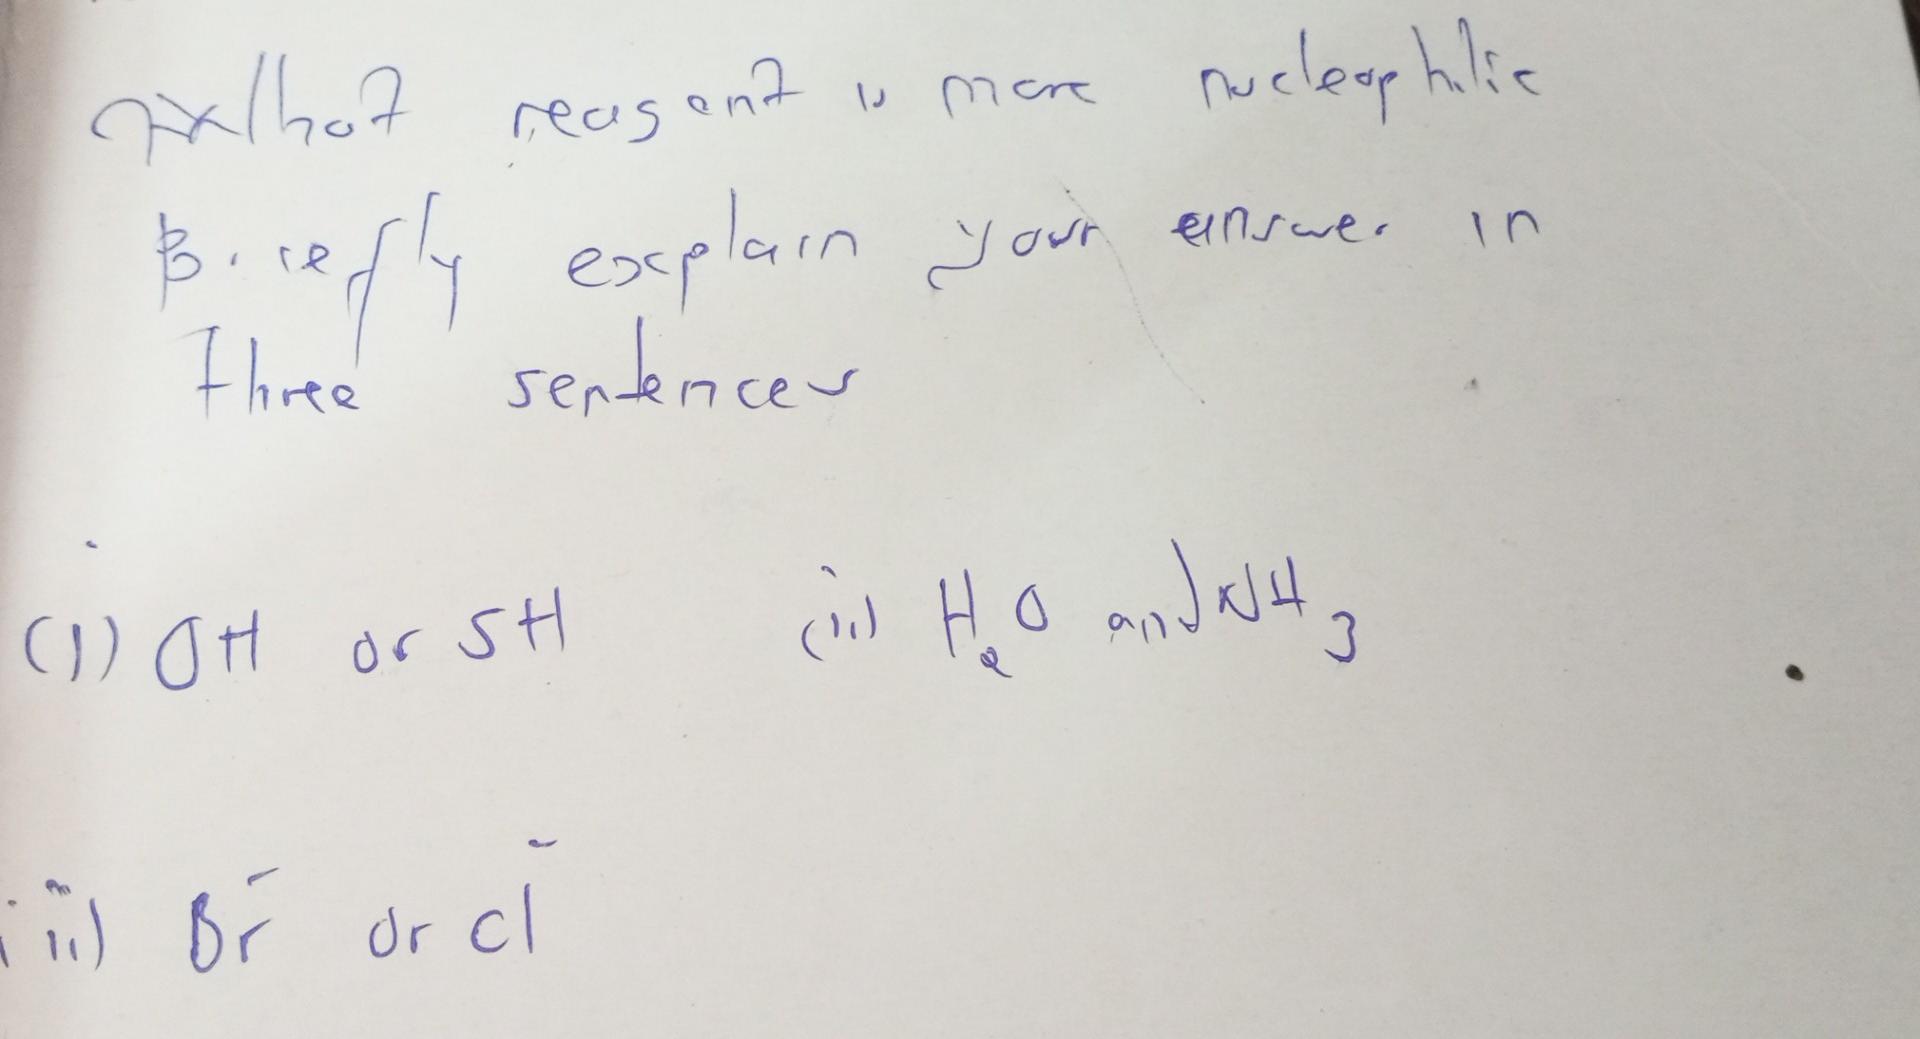 What reagent is more nucleophilic
Briefly explain your answer in
three sentences
(i) OH or SH (ii) H₂O and NH₃
iii) Br⁻ or Cl⁻